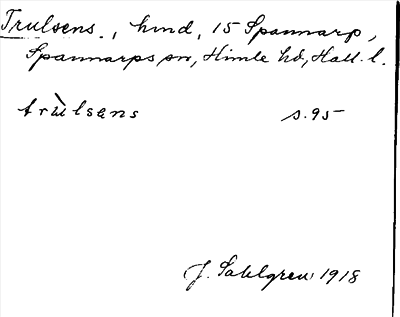 Trulsens., hmd, 15 Spannarp,
Spannarps sn, Himle hd, Hall. l.
trùlsens s. 95
J. Sahlgren 1918